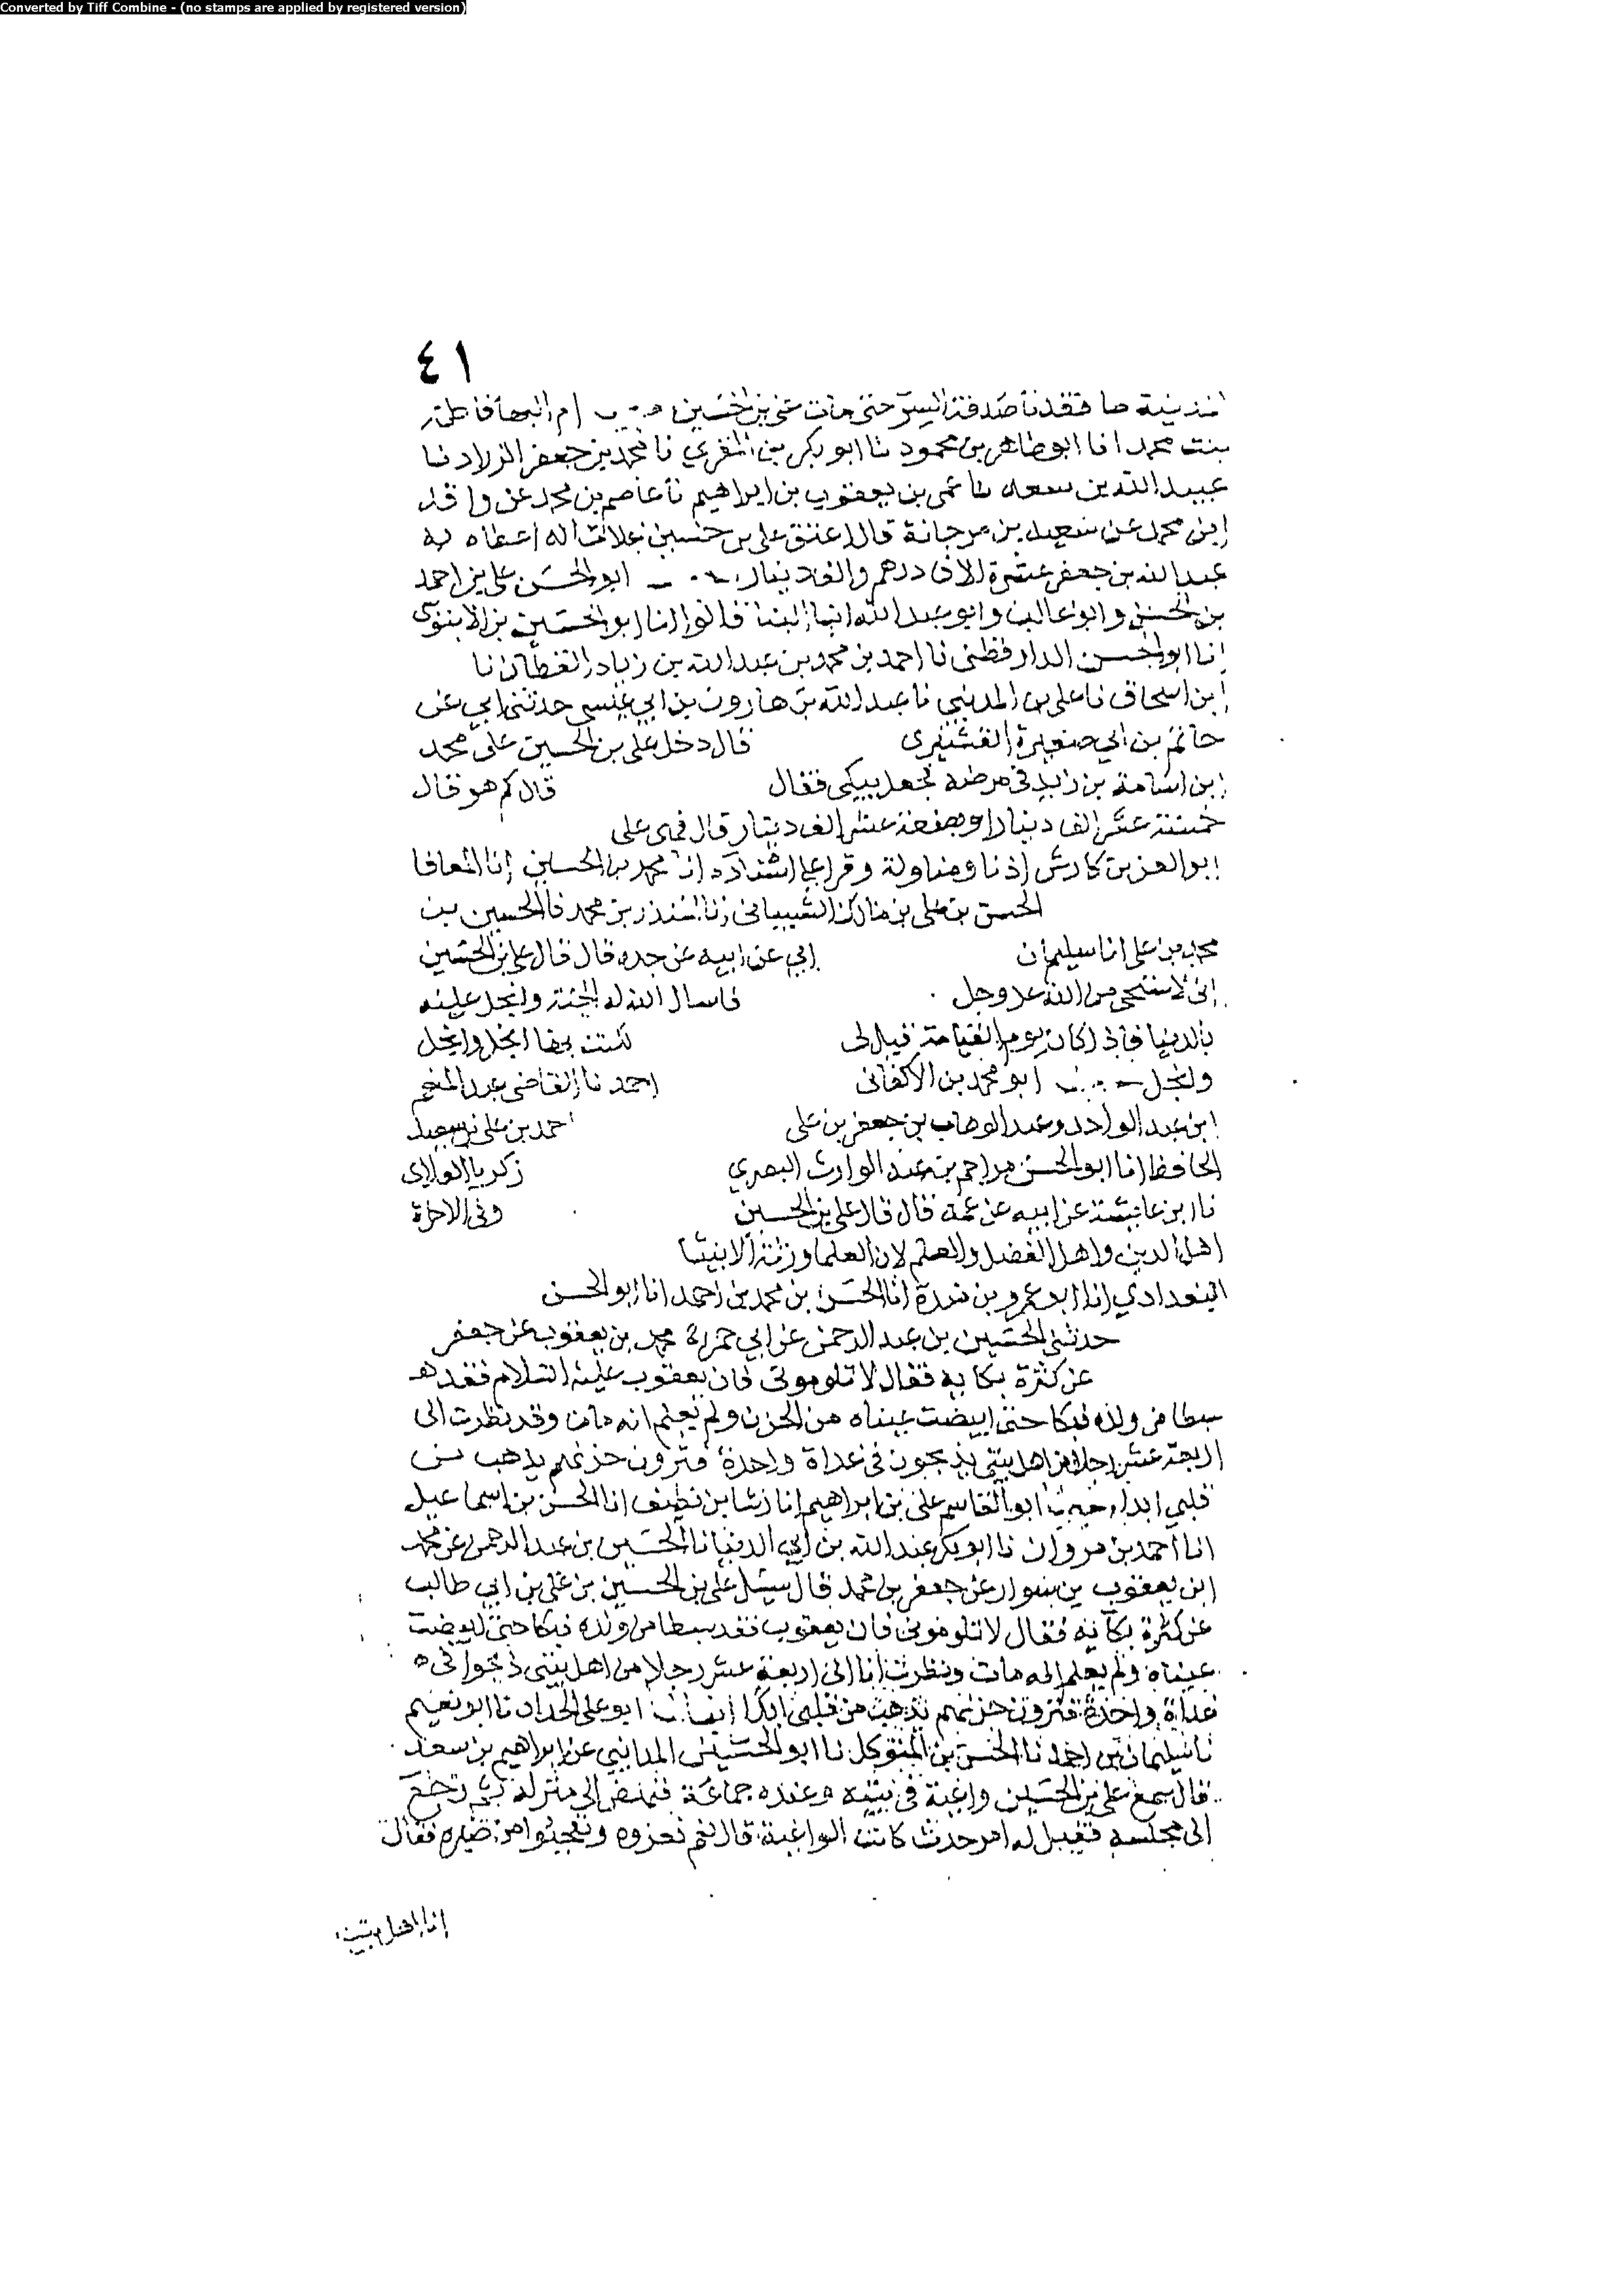 Converted by Tiff Combine - (no stamps are applied by registered version)
٤١
المدينة ما فقدنا صدقة السر حتى مات علي بن الحسين ام البها فاطمة
بنت محمد انا ابو طاهر بن محمود نا ابو بكر بن المقري نا محمد بن جعفر الزراد نا
عبيد الله بن سعد نا عمي بن يعقوب بن ابراهيم نا عاصم بن محمد عن واقد
ابن محمد عن سعيد بن مرجانة قال اعتق علي بن حسين غلاما له اعطاه به
عبد الله بن جعفر عشرة الاف درهم والف دينار ابو الحسن علي بن احمد
بن الحسن وابو غالب وابو عبد الله ابنا البنا قالوا انا ابو الحسين بن الابنوسي
انا ابو الحسن الدارقطني نا احمد بن محمد بن عبد الله بن زياد القطان نا
ابن اسحاق نا علي بن المديني نا عبد الله بن هارون بن ابي عيسى حدثني ابي عن
حاتم بن ابي صغيرة القشيري قال دخل علي بن الحسين على محمد
ابن اسامة بن زيد في مرضه فجعل يبكي فقال قال كم هو قال
خمسة عشر الف دينار او بضعة عشر الف دينار قال فهي علي
ابو العز بن كادش اذنا ومناولة وقرا علي اسناده انا محمد بن الحسين انا المعافا
الحسن بن علي بن مالك الشيباني نا المنذر بن محمد نا الحسين بن
محمد بن علي انا سليمان ابي عن ابيه عن جده قال قال علي بن الحسين
اني لاستحي من الله عز وجل فاسال الله له الجنة وابخل عليه
بالدنيا فاذا كان يوم القيامة قيل لي كنت بها ابخل وابخل
وابخل ابو محمد بن الاكفاني احمد نا القاضي عبد المنعم
ابن عبد الواحد وعبد الوهاب بن جعفر بن علي احمد بن علي بن سعيد
الحافظ انا ابو الحسن مزاحم بن عبد الوارث البصري زكريا الغلابي
نا ابن عايشة عن ابيه عن عمه قال قال علي بن الحسين وفي الاخرة
اهل الدين واهل الفضل والعلم لان العلما ورثة الانبيا
البغدادي انا ابو عمرو بن مندة انا الحسن بن محمد بن احمد انا ابو الحسن
حدثني الحسين بن عبد الرحمن عن ابي حمزة محمد بن يعقوب عن جعفر
عن كثرة بكايه فقال لا تلوموني فان يعقوب عليه السلام فقد
سبطا من ولده فبكا حتى ابيضت عيناه من الحزن ولم يعلم انه مات وقد نظرت الى
اربعة عشر رجلا من اهل بيتي يذبحون في غداة واحدة فترون حزنهم يذهب من
قلبي ابدا ابو القاسم علي بن ابراهيم انا رشا بن نظيف انا الحسن بن اسماعيل
انا احمد بن مروان نا ابو بكر عبد الله بن ابي الدنيا نا الحسين بن عبد الرحمن عن محمد
ابن يعقوب بن سوار عن جعفر بن محمد قال سيل علي بن الحسين بن علي بن ابي طالب
عن كثرة بكائه فقال لا تلوموني فان يعقوب فقد سبطا من ولده فبكا حتى ابيضت
عيناه ولم يعلم انه مات ونظرت انا الى اربعة عشر رجلا من اهل بيتي ذبحوا في
غداة واحدة فترون حزنهم يذهب من قلبي ابدا ابو علي الحداد نا ابو نعيم
نا سليمان بن احمد نا الحسن بن المتوكل نا ابو الحسن المدايني عن ابراهيم بن سعد
قال سمع علي بن الحسين واعية في بيته وعنده جماعة فنهض الى منزله ثم رجع
الى مجلسه فقيل له امن حدث كانت الواعية قال نعم فعزوه وتعجبوا من صبره فقال
انا اهل بيت